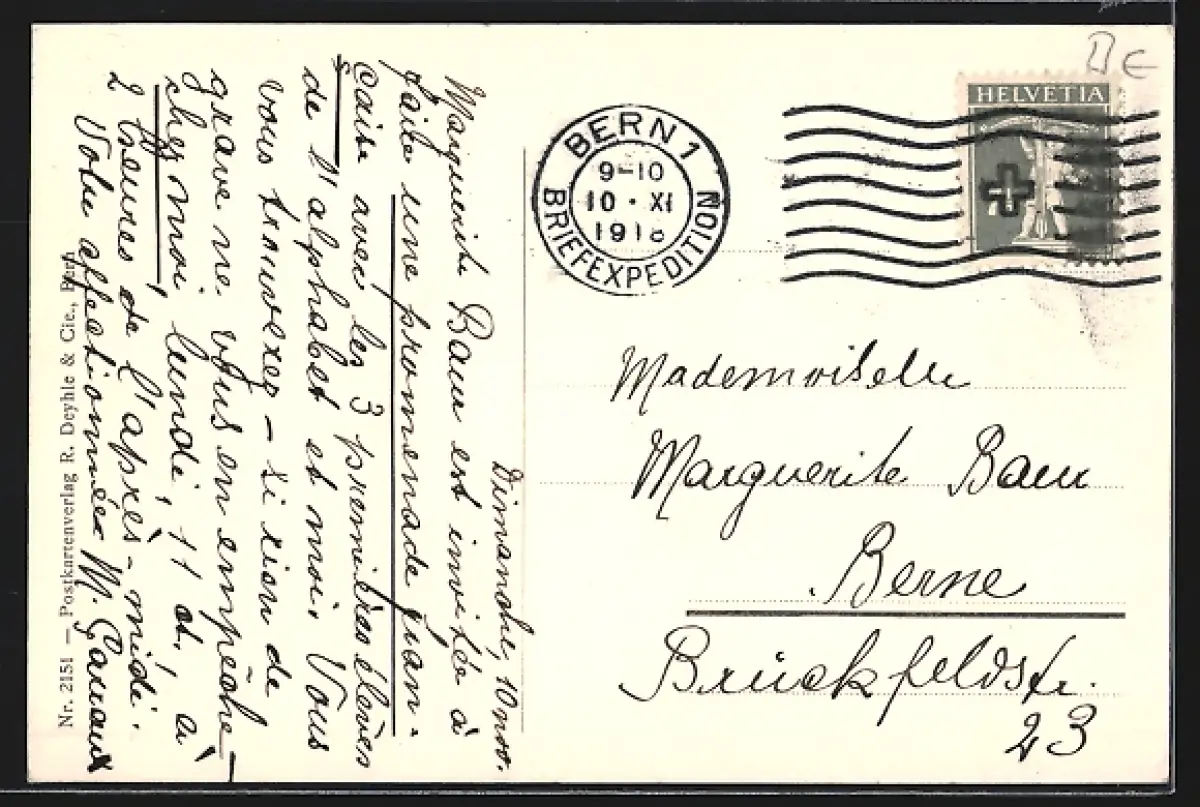 Dimanche, 10 nov.
Marguerite Baur est invitée à
faire une promenade fran-
çaise avec les 3 premières élèves
de l'alphabet et moi. Vous
vous trouverez – si rien de
grave ne vous en empêche –
chez moi, lundi, 11 ct., à
2 heures de l'après-midi.
Votre affectionnée M. Garraux
Nr. 2151 — Postkartenverlag R. Deyhle & Cie., Bern
BERN 1
9-10
10 · XI
1918
BRIEFEXPEDITION
HELVETIA
Mademoiselle
Marguerite Baur
Berne
Brückfeldstr.
23